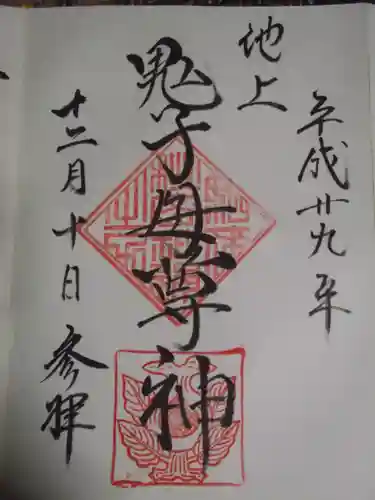 平成廿九年
池上
鬼子母尊神
十二月十日 参拝